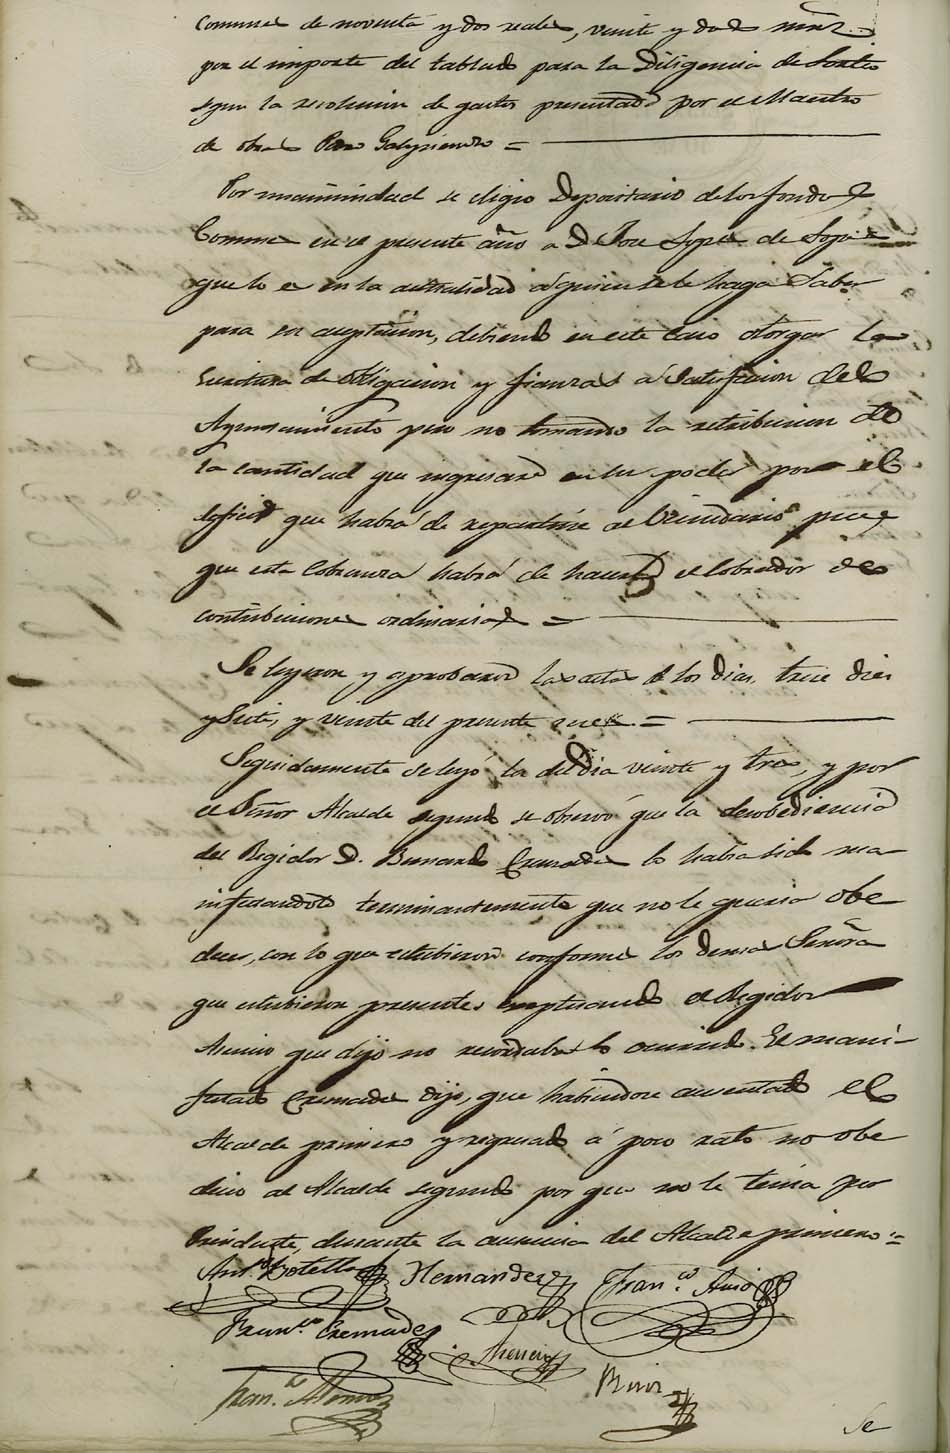 Comunes de noventa y dos reales, veinte y dos mrs.
por el importe del tablado para la Diligencia de Sorteo
segun la resolucion de gastos presentada por el Maestro
de obras =
Por unanimidad se eligio Depositario de los fondos
Comunes en el presente año a D. Jose Lopez de
que lo es en la actualidad a quien se le haga Saber
para su aceptacion, debiendo en este Caso otorgar la
escritura de obligacion y fianzas a Satisfacion del
Ayuntamiento pero no tomando la retribucion de
la cantidad que ingresare en su poder por el
deficit que habrá de repartirse al Vecindario pues
que esta Cobranza habrá de hacerla el Cobrador de
contribuciones ordinarias =
Se leyeron y aprobaron las actas de los dias trece diez
y Siete, y veinte del presente mes. =
Seguidamente se leyó la del dia veinte y tres, y por
el Señor Alcalde segundo se observó que la desobediencia
del Regidor D. Bernardo Cremades lo habia sido ma-
nifestandole terminantemente que no le queria obe
decer, con lo que estubieron conformes los demas Señores
que estubieron presentes exceptuando el Regidor
Asnio que dijo no recordaba lo ocurrido. El mani-
festado Cremades dijo, que habiendose ausentado el
Alcalde primero y regresado á poco rato no obe
decio al Alcalde segundo por que no le tenia por
Presidente, durante la ausencia del Alcalde primero =
Ant.o Botella Hernandez Fran.co Asnio
Fran.co Cremades
Fran.co Alonso
Se